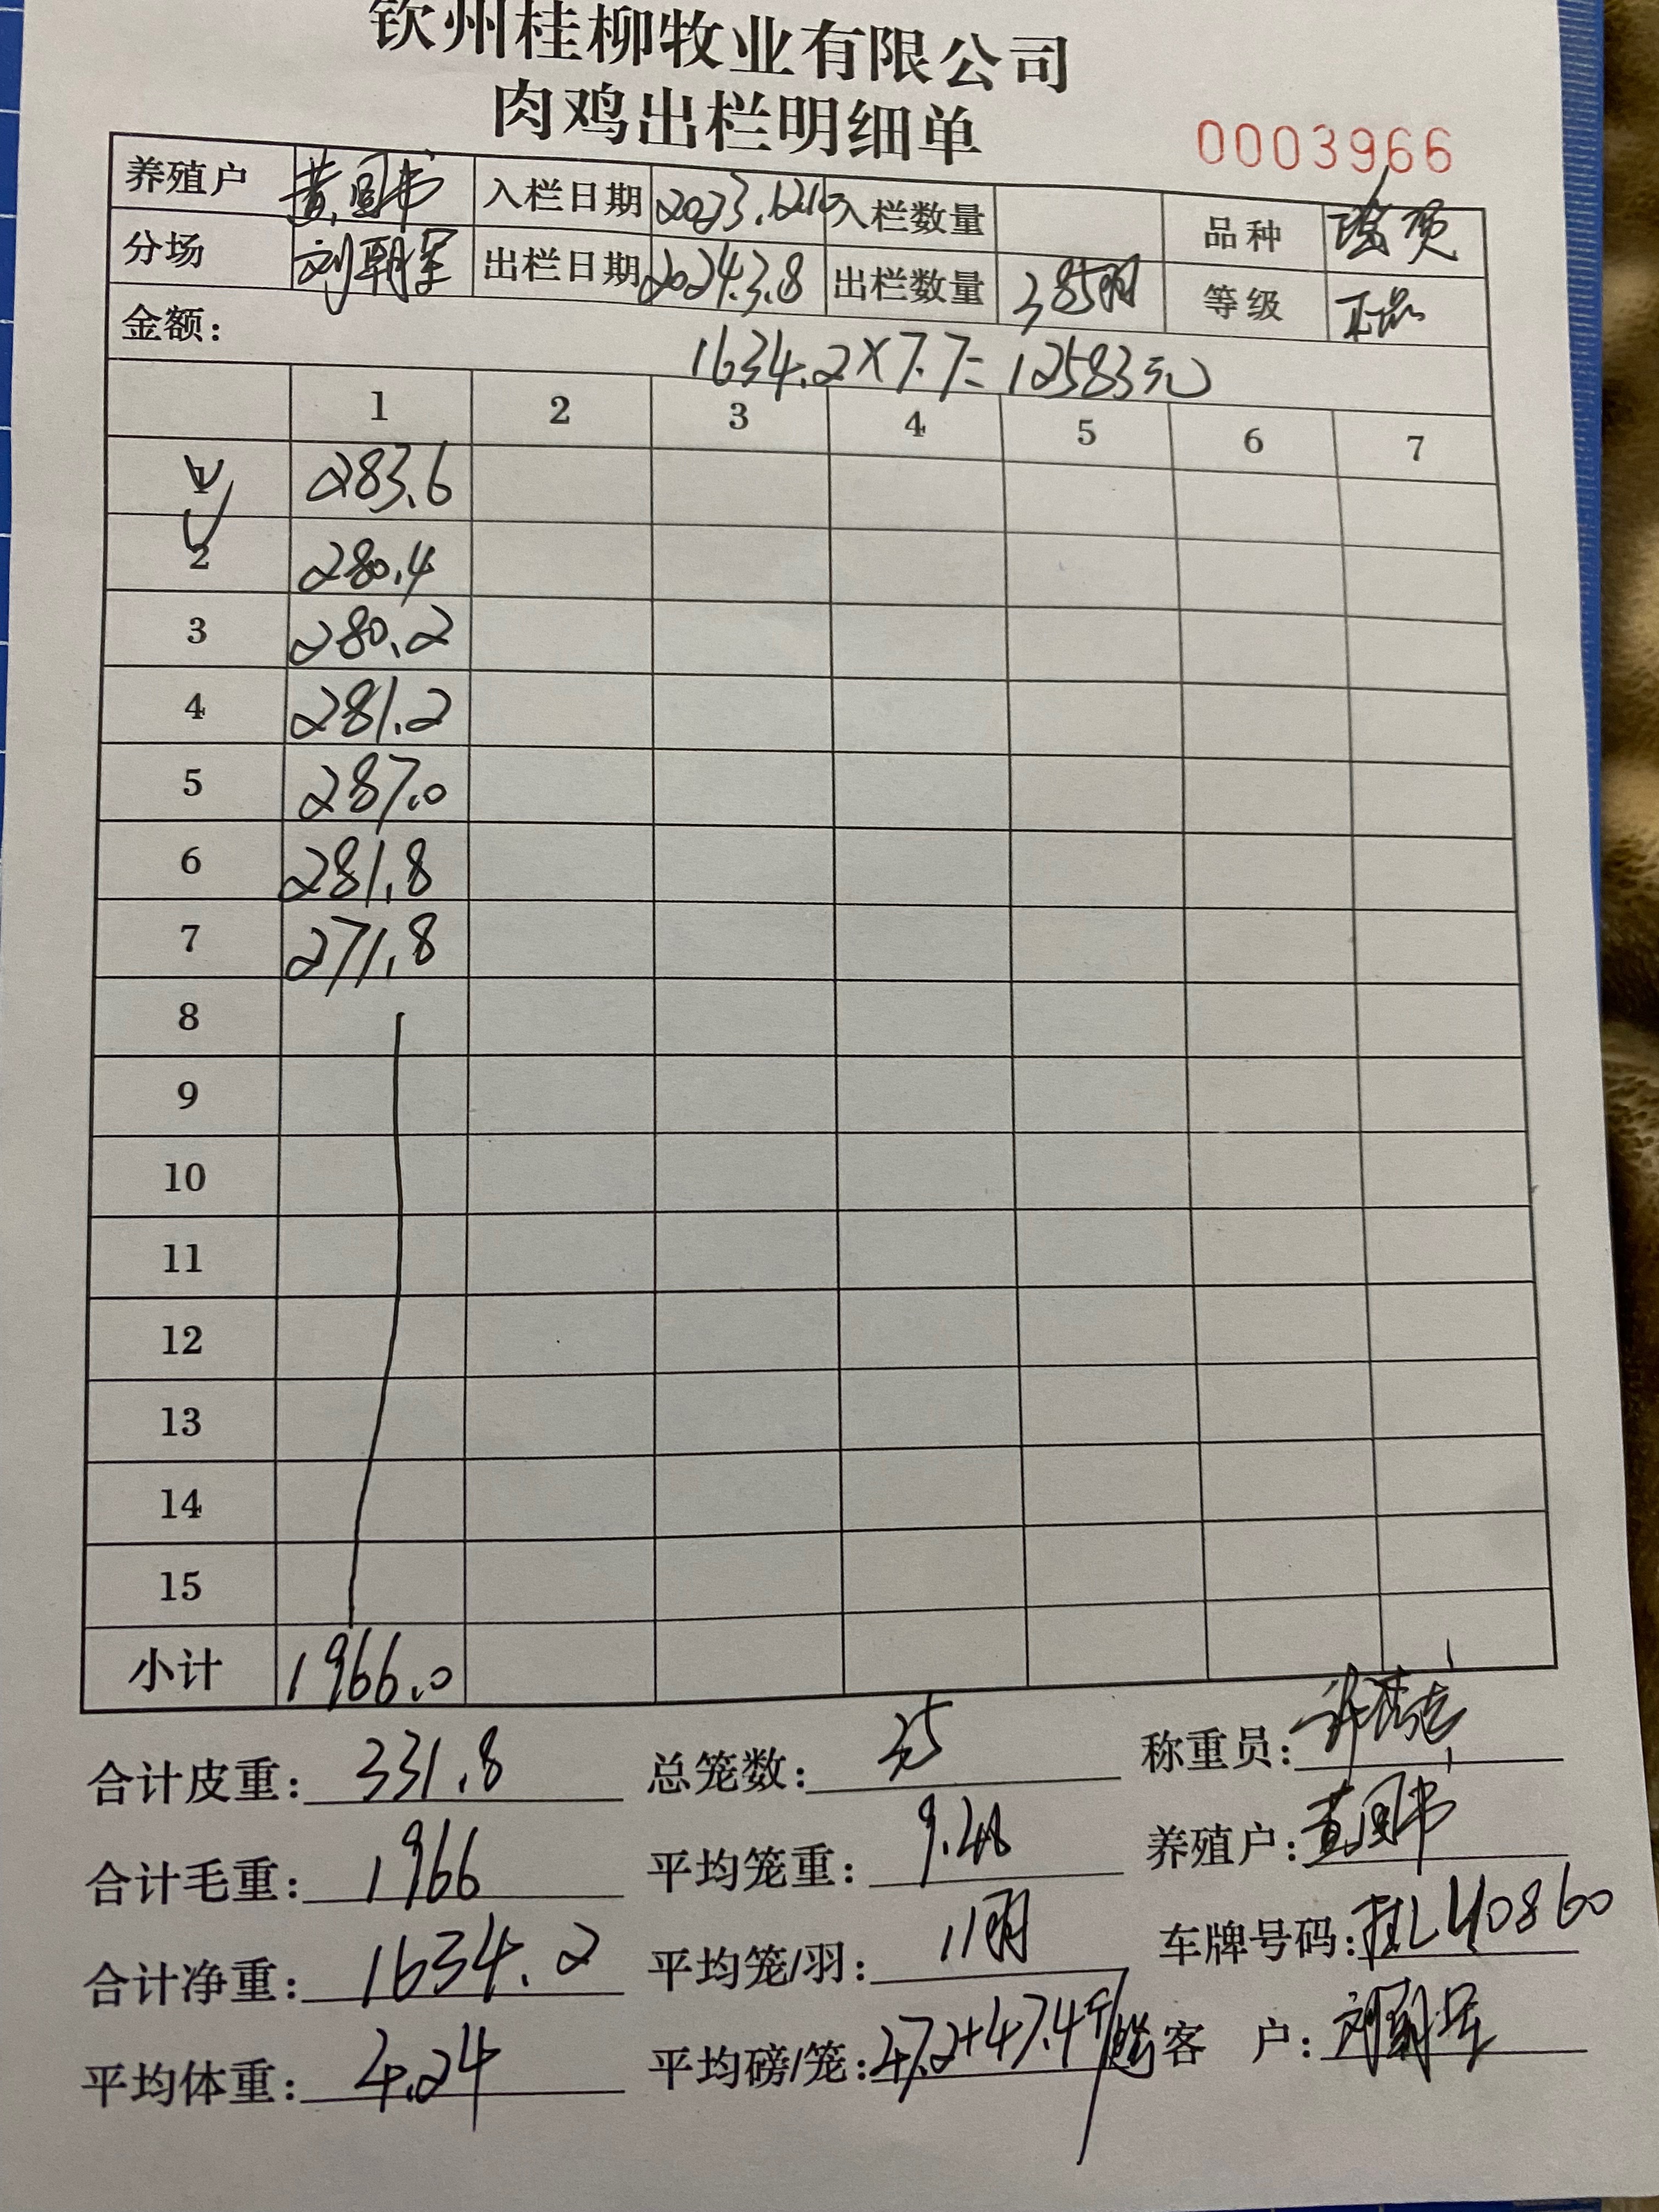 钦州桂柳牧业有限公司
肉鸡出栏明细单
0003966
养殖户 黄国书 入栏日期 2023.12.10 入栏数量 品种 瑶项
分场 刘朝军 出栏日期 2024.3.8 出栏数量 385羽 等级 正品
金额: 1634.2×7.7=12583元
1 2 3 4 5 6 7
1 283.6
2 280.4
3 280.2
4 281.2
5 287.0
6 281.8
7 271.8
8
9
10
11
12
13
14
15
小计 1966.0
合计皮重: 331.8 总笼数: 35 称重员:
合计毛重: 1966 平均笼重: 9.48 养殖户: 黄国书
合计净重: 1634.2 平均笼/羽: 11羽 车牌号码: 桂L40860
平均体重: 4.24 平均磅/笼: 47.2+47.4 客 户: 刘朝军